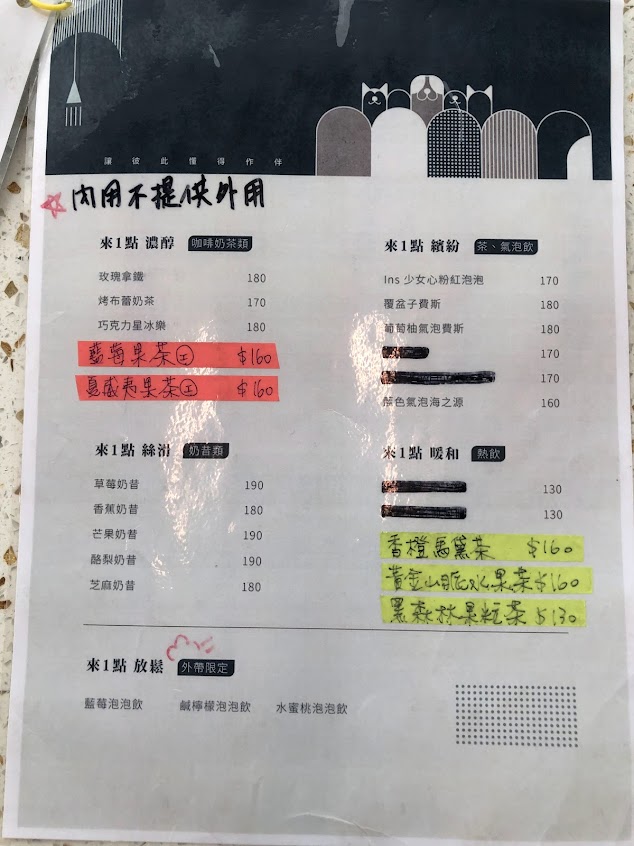 讓彼此懂得作伴
內用不提供外用
來1點 濃醇 咖啡奶茶類
玫瑰拿鐵 180
烤布蕾奶茶 170
巧克力星冰樂 180
藍莓果茶 $160
夏威夷果茶 $160
來1點 絲滑 奶昔類
草莓奶昔 190
香蕉奶昔 180
芒果奶昔 190
酪梨奶昔 190
芝麻奶昔 180
來1點 繽紛 茶、氣泡飲
Ins 少女心粉紅泡泡 170
覆盆子費斯 180
葡萄柚氣泡費斯 180
170
170
顏色氣泡海之源 160
來1點 暖和 熱飲
130
130
香橙馬黛茶 $160
黃金山脈水果茶 $160
黑森林果粒茶 $130
來1點 放鬆 外帶限定
藍莓泡泡飲 鹹檸檬泡泡飲 水蜜桃泡泡飲